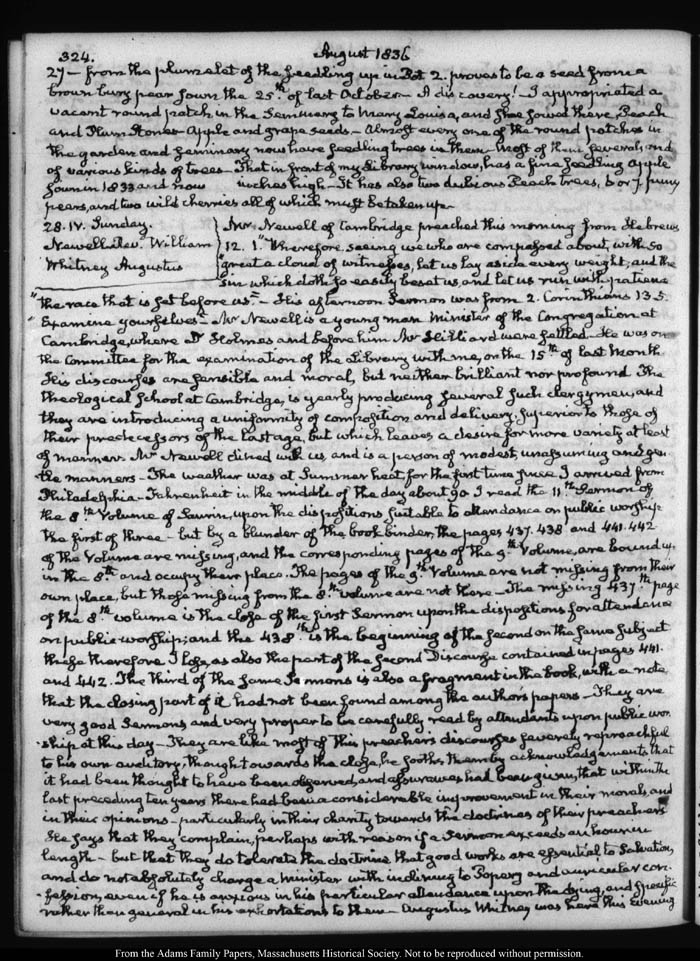 324.
August 1836
27 — from the plumelet of the seedling up in Pot 2. proves to be a seed from a
brown bury pear sown the 25th of last October — A discovery! — I appropriated a
vacant round patch in the Seminary to Mary Louisa, and she sowed there, Peach
and Plum Stones Apple and grape seeds — Almost every one of the round patches in
the garden and Seminary now have seedling trees in them most of them several, and
of various kinds of trees — That in front of my Library window, has a fine seedling apple
sown in 1833 and now inches high — It has also two dubious Peach trees, 6 or 7 puny
pears, and two wild cherries all of which must be taken up —
28. IV. Sunday.
Newell Rev. William
Whitney Augustus
Mr Newell of Cambridge preached this morning from Hebrews
12. 1. "Wherefore, seeing we who are compassed about, with so
"great a cloud of witnesses, let us lay aside every weight, and the
"sin which doth so easily beset us, and let us run with patience
"the race that is set before us" — His afternoon Sermon was from 2. Corinthians 13.5.
"Examine yourselves" — Mr Newell is a young man Minister of the Congregation at
Cambridge, where Dr Holmes and before him Mr Hilliard were settled — He was on
the Committee for the examination of the Library with me, on the 15th of last Month.
His discourses are sensible and moral, but neither brilliant nor profound. The
Theological School at Cambridge, is yearly producing several such clergymen, and
they are introducing a uniformity of composition and delivery, superior to those of
their predecessors of the last age, but which leaves a desire for more variety at least
of manner. Mr Newell dined with us, and is a person of modest, unassuming and gen-
tle manners — The weather was at Summer heat, for the first time since I arrived from
Philadelphia — Fahrenheit in the middle of the day about 90. I read the 11th Sermon of
the 8th Volume of Saurin, upon the dispositions suitable to attendance on public worship
the first of three — but by a blunder of the book binder, the pages 437. 438 and 441. 442
of the Volume are missing, and the corresponding pages of the 9th Volume, are bound up
in the 8th and occupy their place. The pages of the 9th Volume are not missing from their
own place, but those missing from the 8th volume are not there — The missing 437th page
of the 8th volume is the close of the first Sermon upon the dispositions for attendance
on public worship; and the 438th is the beginning of the second on the same subject
these therefore I lose, as also the part of the second Discourse contained in pages 441.
and 442. The third of the same Sermons is also a fragment in the book, with a note
that the closing part of it had not been found among the author's papers — They are
very good Sermons and very proper to be carefully read by attendants upon public wor-
ship at this day — They are like most of this preacher's discourses severely reproachful
to his own auditory, though towards the close, he soothes them by acknowledgements that
it had been thought to have been observed, and assurances had been given, that within the
last preceding ten years there had been a considerable improvement in their morals, and
in their opinions — particularly in their charity towards the doctrines of their preachers
He says that they complain, perhaps with reason if a Sermon exceeds an hour in
length — but that they do tolerate the doctrine that good works are essential to Salvation,
and do not absolutely charge a Minister with inclining to Popery and auricular con-
fession, even if he is anxious in his particular attendance upon the dying, and specific
rather than general in his exhortations to them — Augustus Whitney was here this Evening
From the Adams Family Papers, Massachusetts Historical Society. Not to be reproduced without permission.